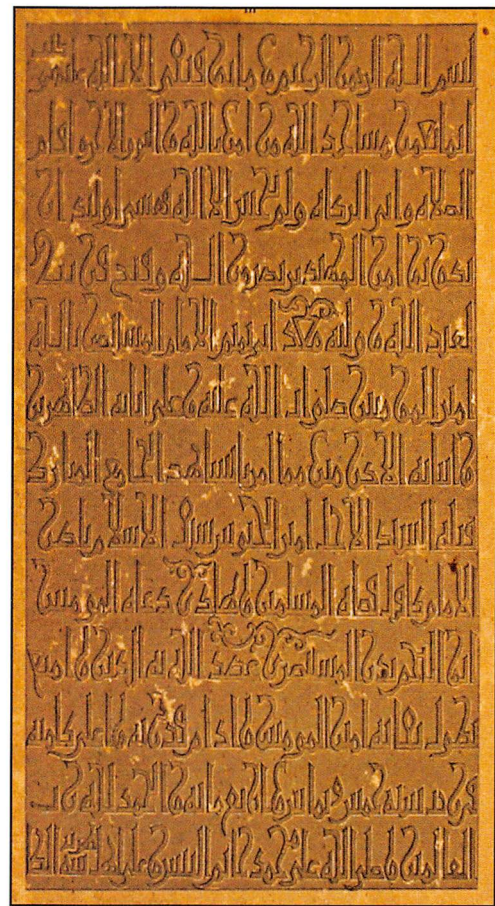 بسم الله الرحمن الرحيم وما توفيقي الا بالله عليه توكلت
انما يعمر مساجد الله من امن بالله واليوم الاخر واقام
الصلاه واتى الزكاه ولم يخش الا الله فعسى اولئك ان
يكونوا من المهتدين نصر من الله وفتح قريب
لعبد الله ووليه معد ابي تميم الامام المستنصر بالله
امير المؤمنين صلوات الله عليه وعلى ابائه الطاهرين
وابنائه الاكرمين مما امر بانشاء هذا الجامع المبارك
فتاه السيد الاجل امير الجيوش سيف الاسلام ناصر
الامام كافل قضاه المسلمين وهادي دعاه المؤمنين
ابو النجم بدر المستنصري عضد الله به الدين وامتع
بطول بقائه امير المؤمنين وادام قدرته واعلى كلمته
في رجب سنه خمس وثمانين واربع مائه والحمد لله رب
العالمين وصلى الله على محمد خاتم النبيين وعلى اله الائمه الطاهرين